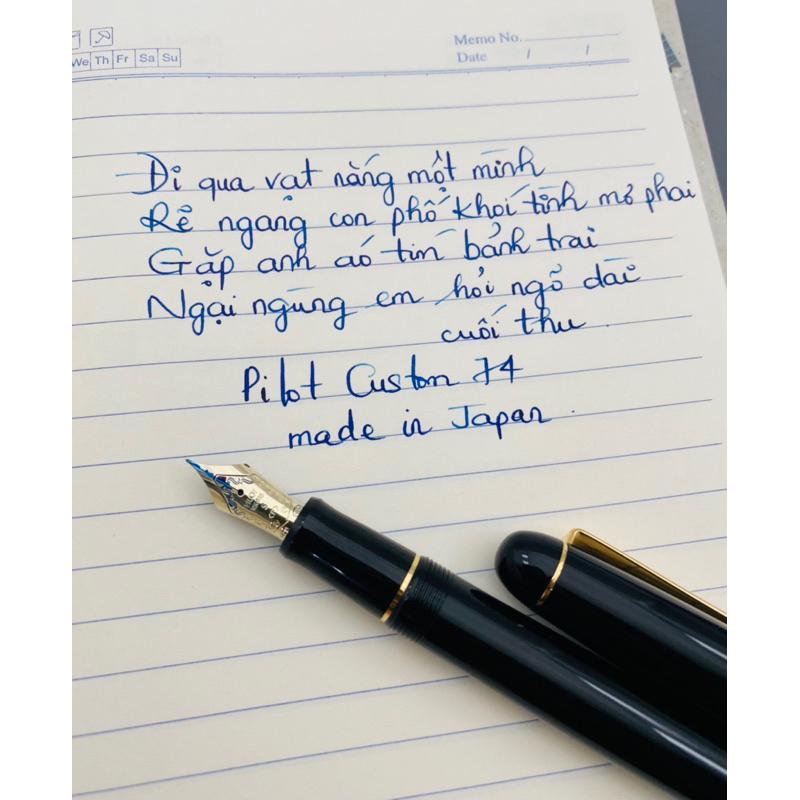 We Th Fr Sa Su
Memo No.
Date / /
Đi qua vạt nắng một mình
Rẽ ngang con phố khơi tình mơ phai
Gặp anh áo tím bảnh trai
Ngại ngùng em hỏi ngõ dài
cuối thu.
Pilot Custom 74
made in Japan.